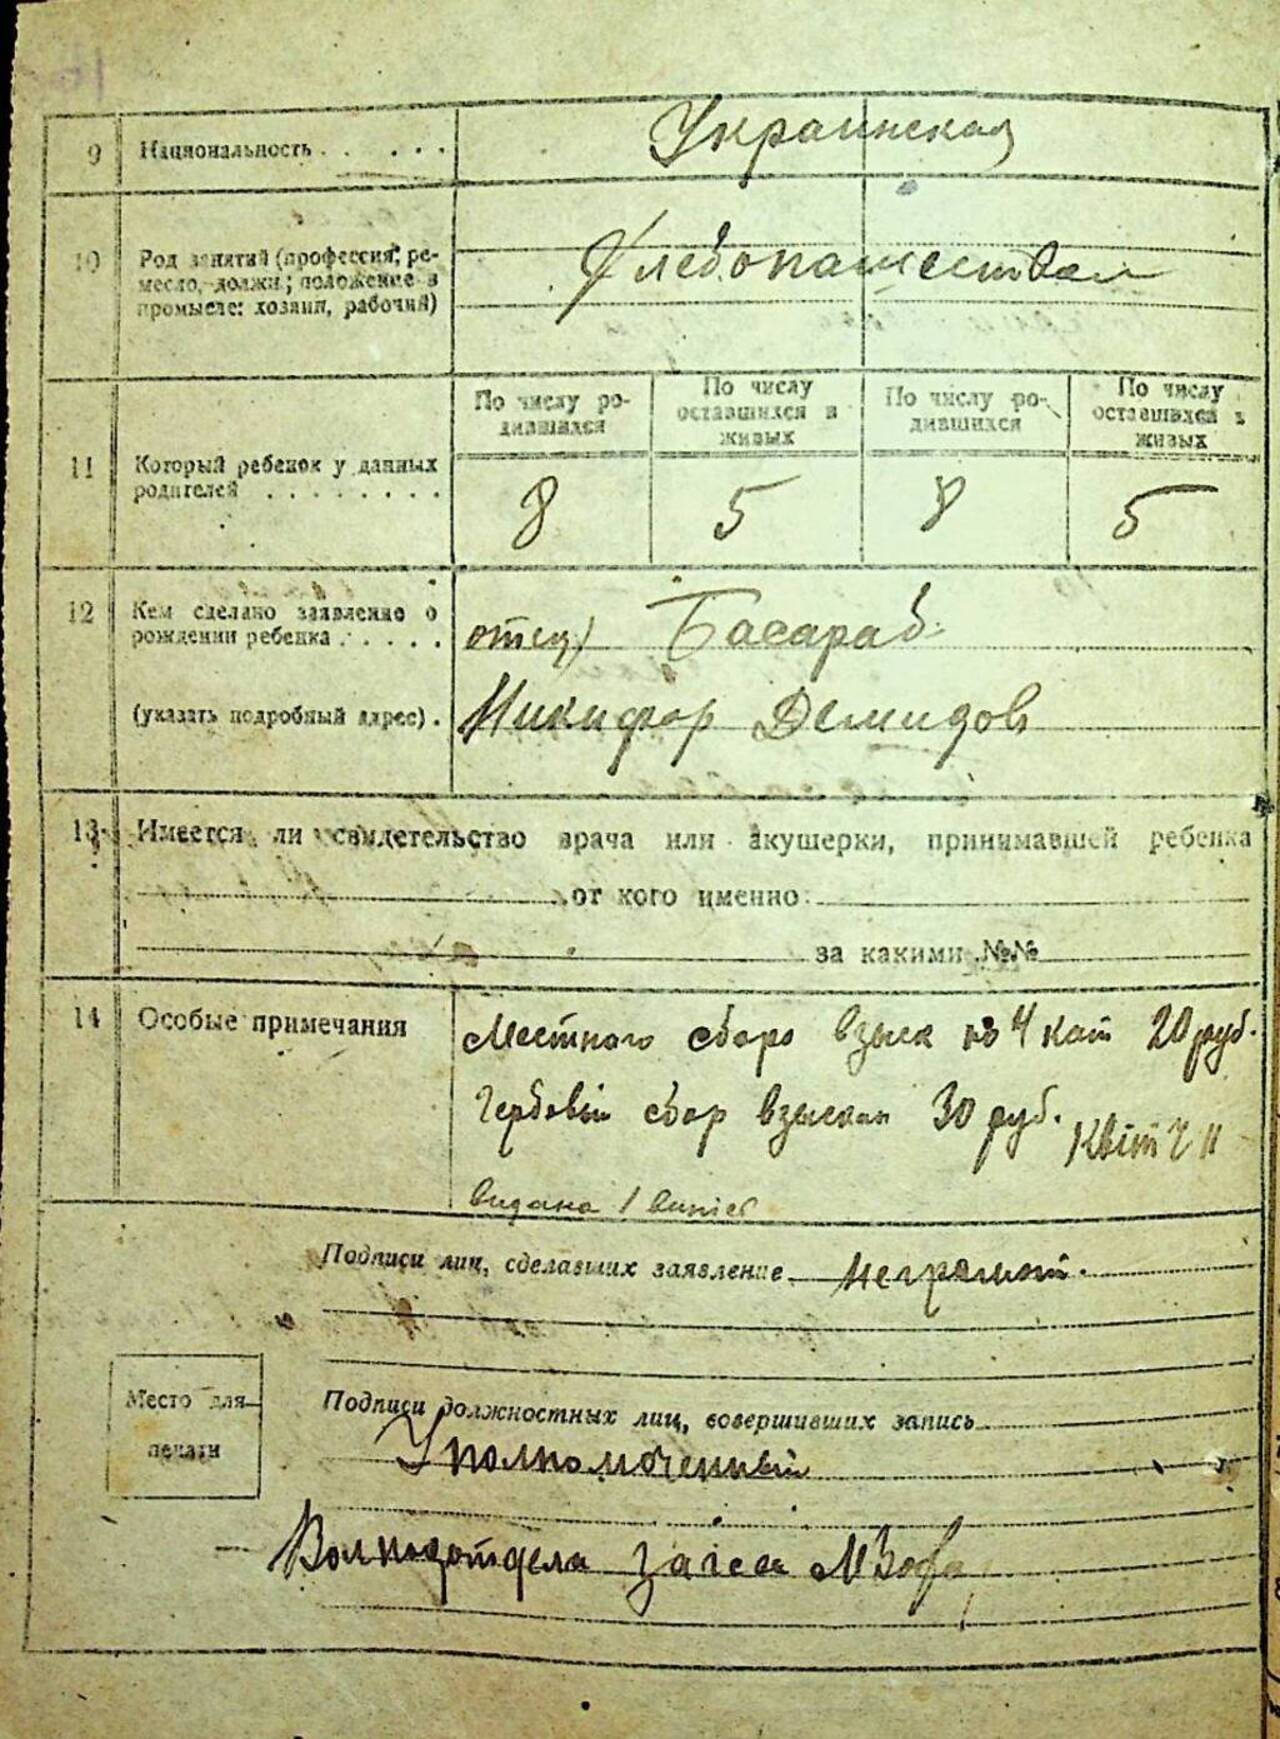 9 Национальность . . . . . Украинская
10 Род занятий (профессия, ре-
месло, должн.; положение в
промысле: хозяин, рабочий)
Хлебопашество
По числу ро-
дившихся
По числу
оставшихся в
живых
По числу ро-
дившихся
По числу
оставшихся в
живых
11 Который ребенок у данных
родителей . . . . . . . .
8 5 8 5
12 Кем сделано заявление о
рождении ребенка . . . . .
отец Басараб
(указать подробный адрес) . Никифор Демидов
13 Имеется ли свидетельство врача или акушерки, принимавшей ребенка
от кого именно
за какими №№
14 Особые примечания
Местного сбора взыск по 4 кат 20 руб.
Гербовый сбор взыскан 30 руб. Квит
видана 1
Подписи лиц, сделавших заявление неграмот.
Место для
печати
Подписи должностных лиц, совершивших запись
Уполномоченный
Волподотдела загса